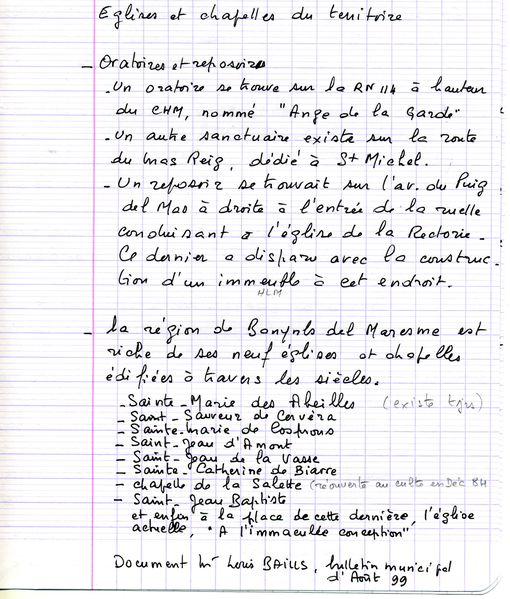 Eglises et chapelles du territoire
- Oratoires et reposoirs
- Un oratoire se trouve sur la RN 114 à hauteur
du CHM, nommé "Ange de la Garde"
- Un autre sanctuaire existe sur la route
du Mas Reig, dédié à St Michel.
- Un reposoir se trouvait sur l'av. du Puig
del Mas à droite à l'entrée de la ruelle
conduisant à l'église de la Rectorie.
Ce dernier a disparu avec la construc-
tion d'un immeuble à cet endroit.
HLM
- la région de Banyuls del Maresme est
riche de ses neuf églises et chapelles
édifiées à travers les siècles.
- Sainte-Marie des Abeilles (existe tjrs)
- Saint-Sauveur de Cervéra
- Sainte-Marie de Cosprons
- Saint-Jean d'Amont
- Saint-Jean de la Vasse
- Sainte-Catherine de Biarre
- chapelle de la Salette (réouverte au culte en Déc 84
- Saint-Jean Baptiste
et enfin à la place de cette dernière, l'église
actuelle, "A l'immaculée conception"
Document Mr Louis BAILLS, bulletin municipal
d'Août 99